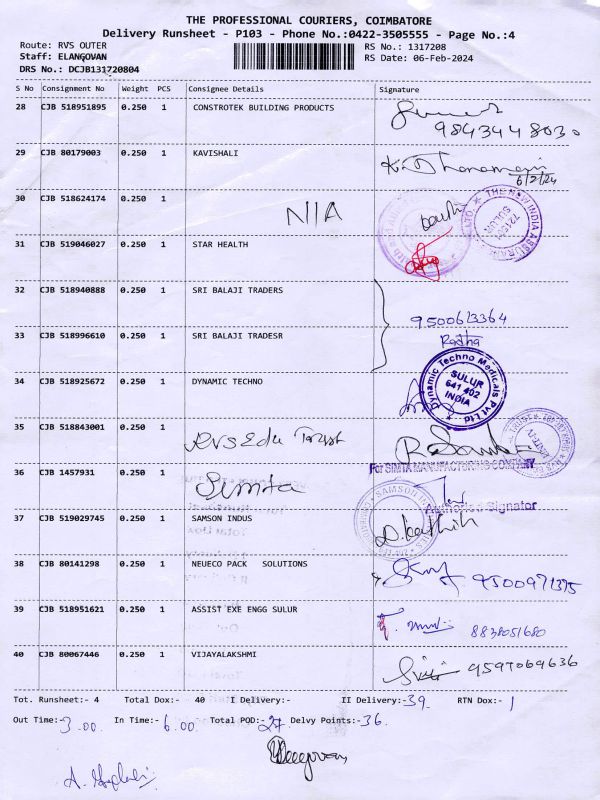 THE PROFESSIONAL COURIERS, COIMBATORE
Delivery Runsheet - P103 - Phone No.:0422-3505555 - Page No.:4
Route: RVS OUTER
Staff: ELANGOVAN
DRS No.: DCJB131720804
RS No.: 1317208
RS Date: 06-Feb-2024
S No Consignment No Weight PCS Consignee Details Signature
28 CJB 518951895 0.250 1 CONSTROTEK BUILDING PRODUCTS
9843448030
29 CJB 80179003 0.250 1 KAVISHALI
6/2/24
30 CJB 518624174 0.250 1 NIA
THE NEW INDIA ASSURAN
721501
SULUR
31 CJB 519046027 0.250 1 STAR HEALTH
32 CJB 518940888 0.250 1 SRI BALAJI TRADERS
9500613364
33 CJB 518996610 0.250 1 SRI BALAJI TRADESR
Radha
34 CJB 518925672 0.250 1 DYNAMIC TECHNO
Dynamic Techno Medicals Pvt Ltd
SULUR
641 402
INDIA
35 CJB 518843001 0.250 1 RVS Edu Trust
36 CJB 1457931 0.250 1 Simta
For SIMTA MANUFACTURING COMPANY
Authorised Signator
37 CJB 519029745 0.250 1 SAMSON INDUS
38 CJB 80141298 0.250 1 NEUECO PACK SOLUTIONS
9500971375
39 CJB 518951621 0.250 1 ASSIST EXE ENGG SULUR
8838051680
40 CJB 80067446 0.250 1 VIJAYALAKSHMI
9597069636
Tot. Runsheet:- 4 Total Dox:- 40 I Delivery:- II Delivery:-39. RTN Dox:- 1
Out Time:-3.00. In Time:-6.00. Total POD:-27. Delvy Points:-36.